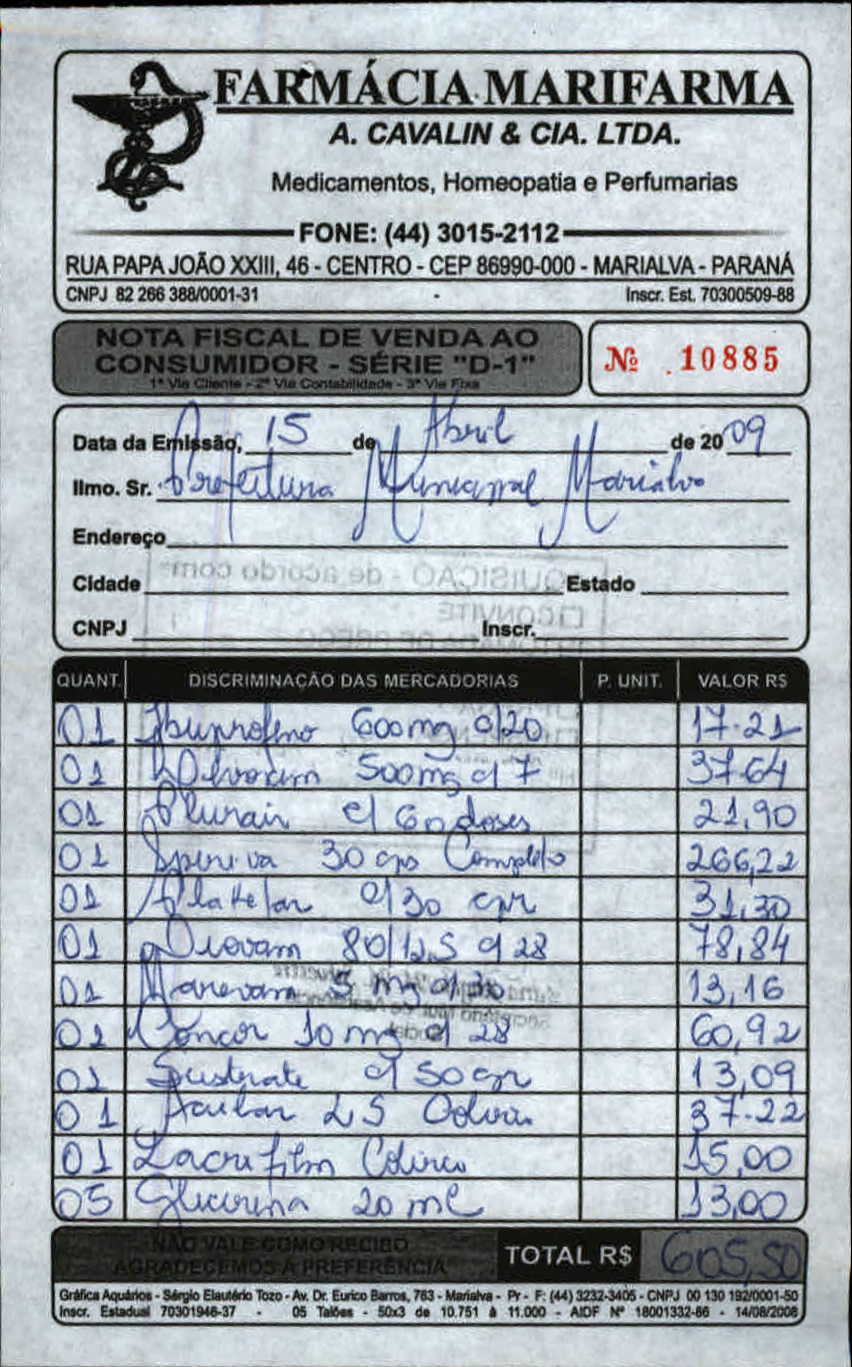 FARMÁCIA MARIFARMA
A. CAVALIN & CIA. LTDA.
Medicamentos, Homeopatia e Perfumarias
FONE: (44) 3015-2112
RUA PAPA JOÃO XXIII, 46 - CENTRO - CEP 86990-000 - MARIALVA - PARANÁ
CNPJ 82 266 388/0001-31 Inscr. Est. 70300509-88
NOTA FISCAL DE VENDA AO
CONSUMIDOR - SÉRIE "D-1"
1ª Via Cliente - 2ª Via Contabilidade - 3ª Via Fixa
Nº 10885
Data da Emissão, 15 de Abril de 2009
Ilmo. Sr. Prefeitura Municipal Marialva
Endereço
Cidade Estado
CNPJ Inscr.
AQUISIÇÃO - de acordo com:
CONVITE
TOMADA DE PREÇO
QUANT. DISCRIMINAÇÃO DAS MERCADORIAS P. UNIT. VALOR R$
01 Ibuprofeno 600mg c/20 17.21
01 500mg c/7 37.64
01 Plurair c/ 60 doses 21,90
01 Spiriva 30 cps Completo 266,22
01 Platelar c/30 cpr 31,30
01 Diovam 80/12,5 c/28 78,84
01 Marevam 5 mg c/30 13,16
01 Concor 10 mg c/ 28 60,92
01 Sustrate c/ 50 cpr 13,09
01 Acular LS Colirio 37.22
01 Lacrifilm Colirio 15,00
05 Glicerina 20 ml 13,00
NÃO VALE COMO RECIBO
AGRADECEMOS A PREFERÊNCIA
TOTAL R$ 605,50
Gráfica Aquários - Sérgio Elautério Tozo - Av. Dr. Eurico Barros, 763 - Marialva - Pr - F: (44) 3232-3405 - CNPJ 00 130 192/0001-50
Inscr. Estadual 70301946-37 - 05 Talões - 50x3 de 10.751 à 11.000 - AIDF Nº 18001332-66 - 14/08/2008